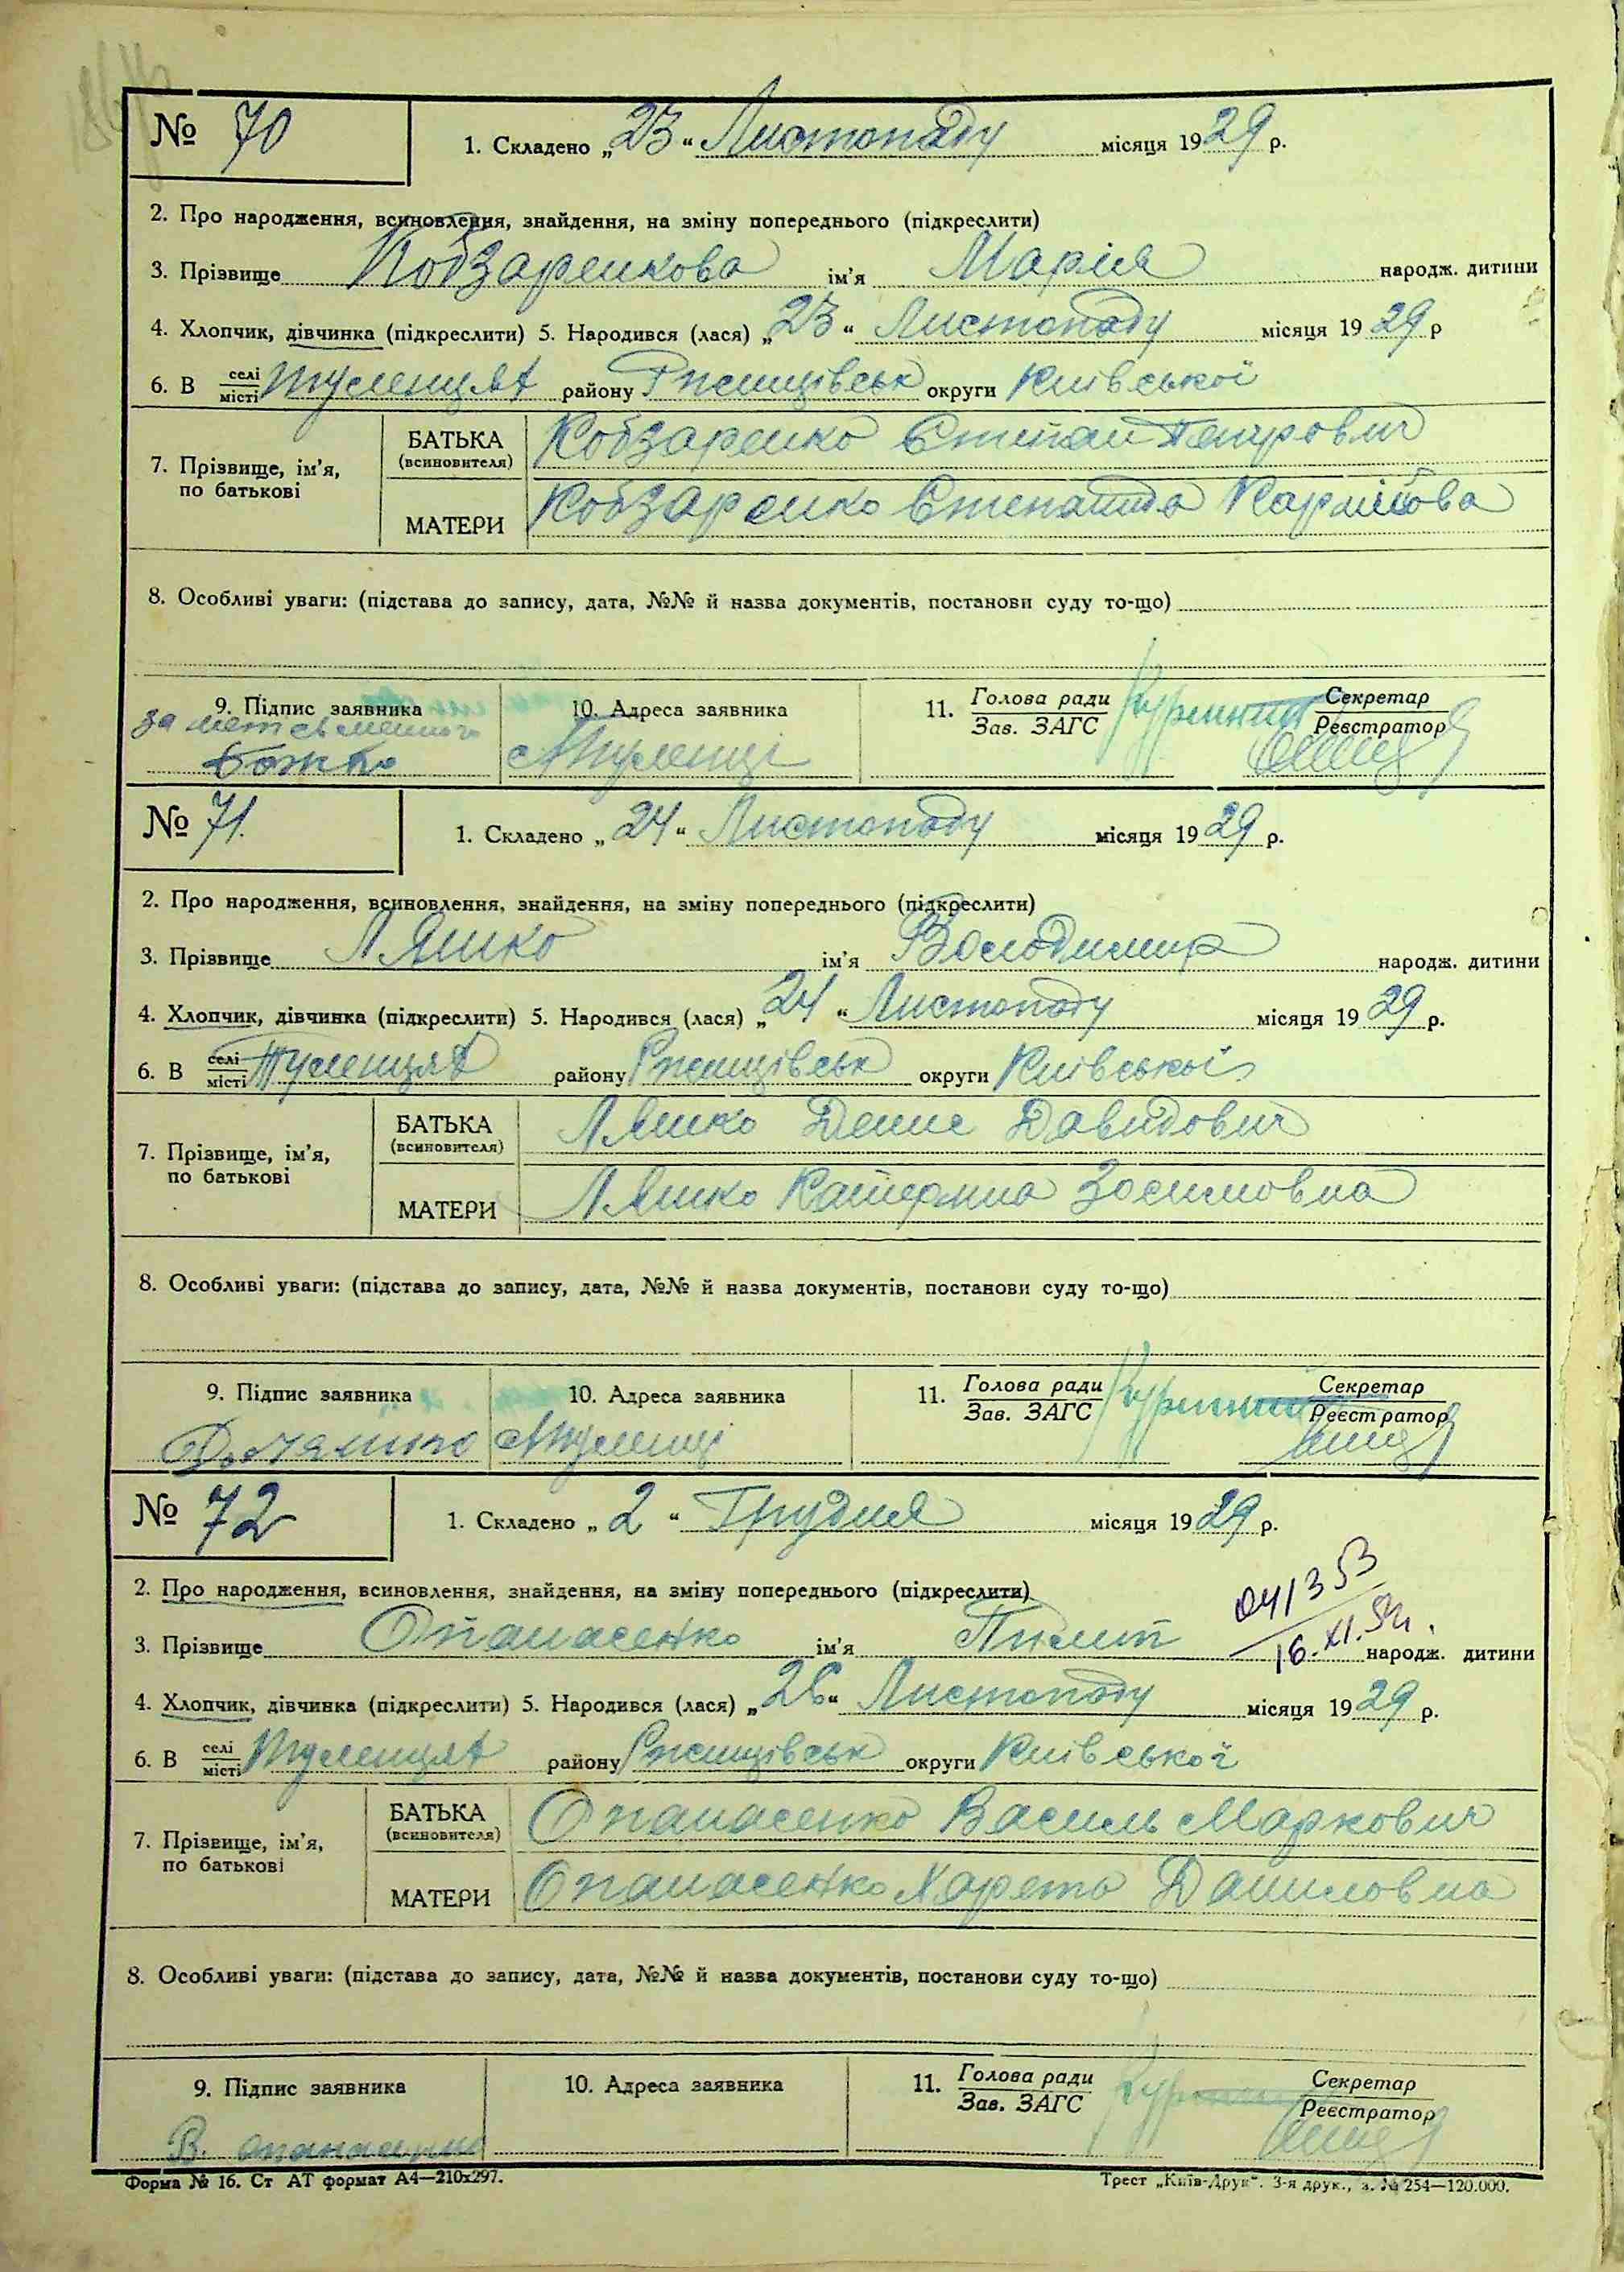 № 70 1. Складено „23“ Листопаду місяця 1929 р.
2. Про народження, всиновлення, знайдення, на зміну попереднього (підкреслити)
3. Прізвище Кобзаренкова ім'я Марія народж. дитини
4. Хлопчик, дівчинка (підкреслити) 5. Народився (лася) „23“ Листопаду місяця 1929 р
6. В селі/місті Туленцях району Ржищівськ округи Київської
7. Прізвище, ім'я, по батькові
БАТЬКА (всиновителя) Кобзаренко Степан Петрович
МАТЕРИ Кобзаренко Степанида
8. Особливі уваги: (підстава до запису, дата, №№ й назва документів, постанови суду то-що)
9. Підпис заявника 10. Адреса заявника 11. Голова ради/Зав. ЗАГС Секретар/Реєстратор
Божко с Туленці
№ 71. 1. Складено „24“ Листопаду місяця 1929 р.
2. Про народження, всиновлення, знайдення, на зміну попереднього (підкреслити)
3. Прізвище Ляшко ім'я Володимир народж. дитини
4. Хлопчик, дівчинка (підкреслити) 5. Народився (лася) „24“ Листопаду місяця 1929 р.
6. В селі/місті Туленцях району Ржищівськ округи Київської
7. Прізвище, ім'я, по батькові
БАТЬКА (всиновителя) Ляшко Денис Давидович
МАТЕРИ Ляшко Катерина Зосимовна
8. Особливі уваги: (підстава до запису, дата, №№ й назва документів, постанови суду то-що)
9. Підпис заявника 10. Адреса заявника 11. Голова ради/Зав. ЗАГС Секретар/Реєстратор
Д. Ляшко с Туленці
№ 72 1. Складено „2“ Грудня місяця 1929 р.
2. Про народження, всиновлення, знайдення, на зміну попереднього (підкреслити)
041353
16.XI.54.
3. Прізвище Опанасенко ім'я Пилип народж. дитини
4. Хлопчик, дівчинка (підкреслити) 5. Народився (лася) „26“ Листопаду місяця 1929 р.
6. В селі/місті Туленцях району Ржищівськ округи Київської
7. Прізвище, ім'я, по батькові
БАТЬКА (всиновителя) Опанасенко Василь Маркович
МАТЕРИ Опанасенко Харета Даниловна
8. Особливі уваги: (підстава до запису, дата, №№ й назва документів, постанови суду то-що)
9. Підпис заявника 10. Адреса заявника 11. Голова ради/Зав. ЗАГС Секретар/Реєстратор
В.
Форма № 16. Ст АТ формат А4—210x297. Трест „Київ-Друк“. 3-я друк., з. № 254—120.000.